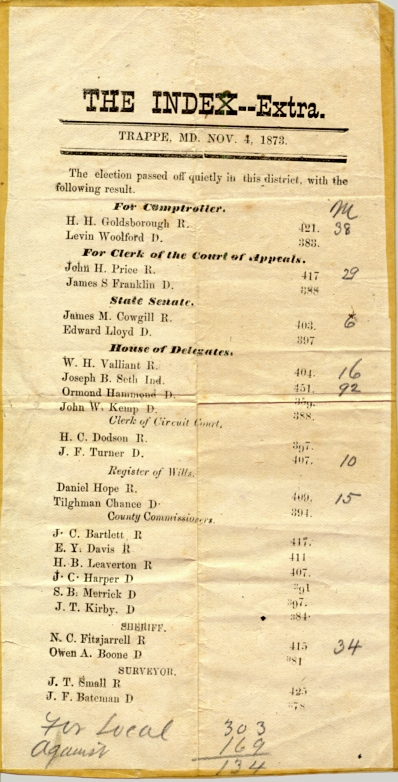 THE INDEX--Extra.
TRAPPE, MD. NOV. 4, 1873.
The election passed off quietly in this district, with the
following result.
M
For Comptroller.
H. H. Goldsborough R. 421. 38
Levin Woolford D. 383.
For Clerk of the Court of Appeals.
John H. Price R. 417 29
James S Franklin D. 388
State Senate.
James M. Cowgill R. 403. 6
Edward Lloyd D. 397
House of Delegates.
W. H. Valliant R. 404. 16
Joseph B. Seth Ind. 451. 92
Ormond Hammond D. 359.
John W. Kemp D. 388.
Clerk of Circuit Court.
H. C. Dodson R. 397.
J. F. Turner D. 407. 10
Register of Wills.
Daniel Hope R. 409. 15
Tilghman Chance D. 394.
County Commissioners.
J. C. Bartlett R 417.
E. Y. Davis R 411
H. B. Leaverton R 407.
J. C. Harper D 391
S. B. Merrick D 397.
J. T. Kirby. D 384.
SHERIFF.
N. C. Fitzjarrell R 415 34
Owen A. Boone D 381
SURVEYOR.
J. T. Small R 425
J. F. Bateman D 378
For Local 303
Against 169
134